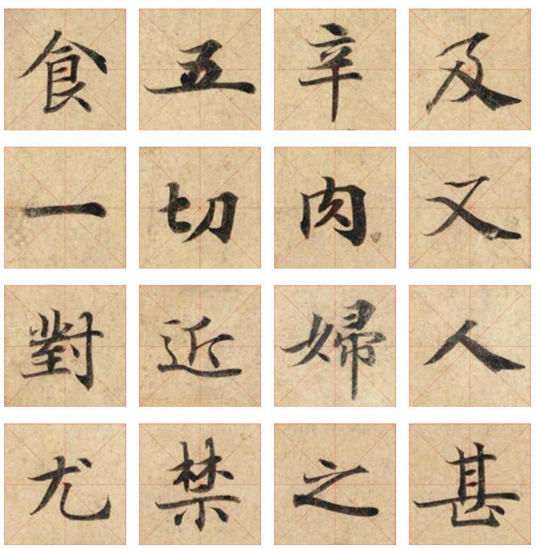 食五辛及
一切肉又
對近婦人
尤禁之甚